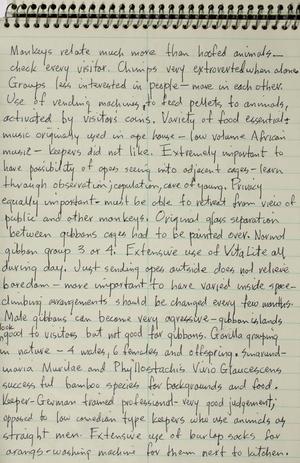 Monkeys relate much more than hoofed animals—
check every visitor. Chimps very extroverted when alone
Groups less interested in people – more in each other.
Use of vending machines, to feed pellets to animals,
activated by visitors coins. Variety of food essential:
music originally used in ape house – low volume African
music – keepers did not like. Extremely important to
have possibility of apes seeing into adjacent cages – learn
through observation; copulation, care of young. Privacy
equally important – must be able to retreat from view of
public and other monkeys. Original glass separation
between gibbons cages had to be painted over. Normal
gibbon group 3 or 4. Extensive use of Vita Lite all
during day. Just sending apes outside does not relieve
boredom – more important to have varied inside space –
climbing arrangements should be changed every few months.
Male gibbons can become very agressive – gibbon islands
look good to visitors but not good for gibbons. Gorilla grouping
in nature – 4 males, 6 females and offspring.
maria Murilae and Phyllostachis Vivio Glaucescens
successful bamboo species for backgrounds and food.
Keeper – German trained professional – very good judgement;
opposed to low comedian type keepers who use animals as
straight men. Extensive use of burlap sacks for
orangs – washing machine for them next to kitchen.